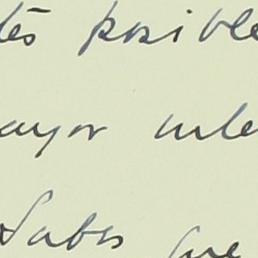 tēs posible
ayor inte
Sabes que